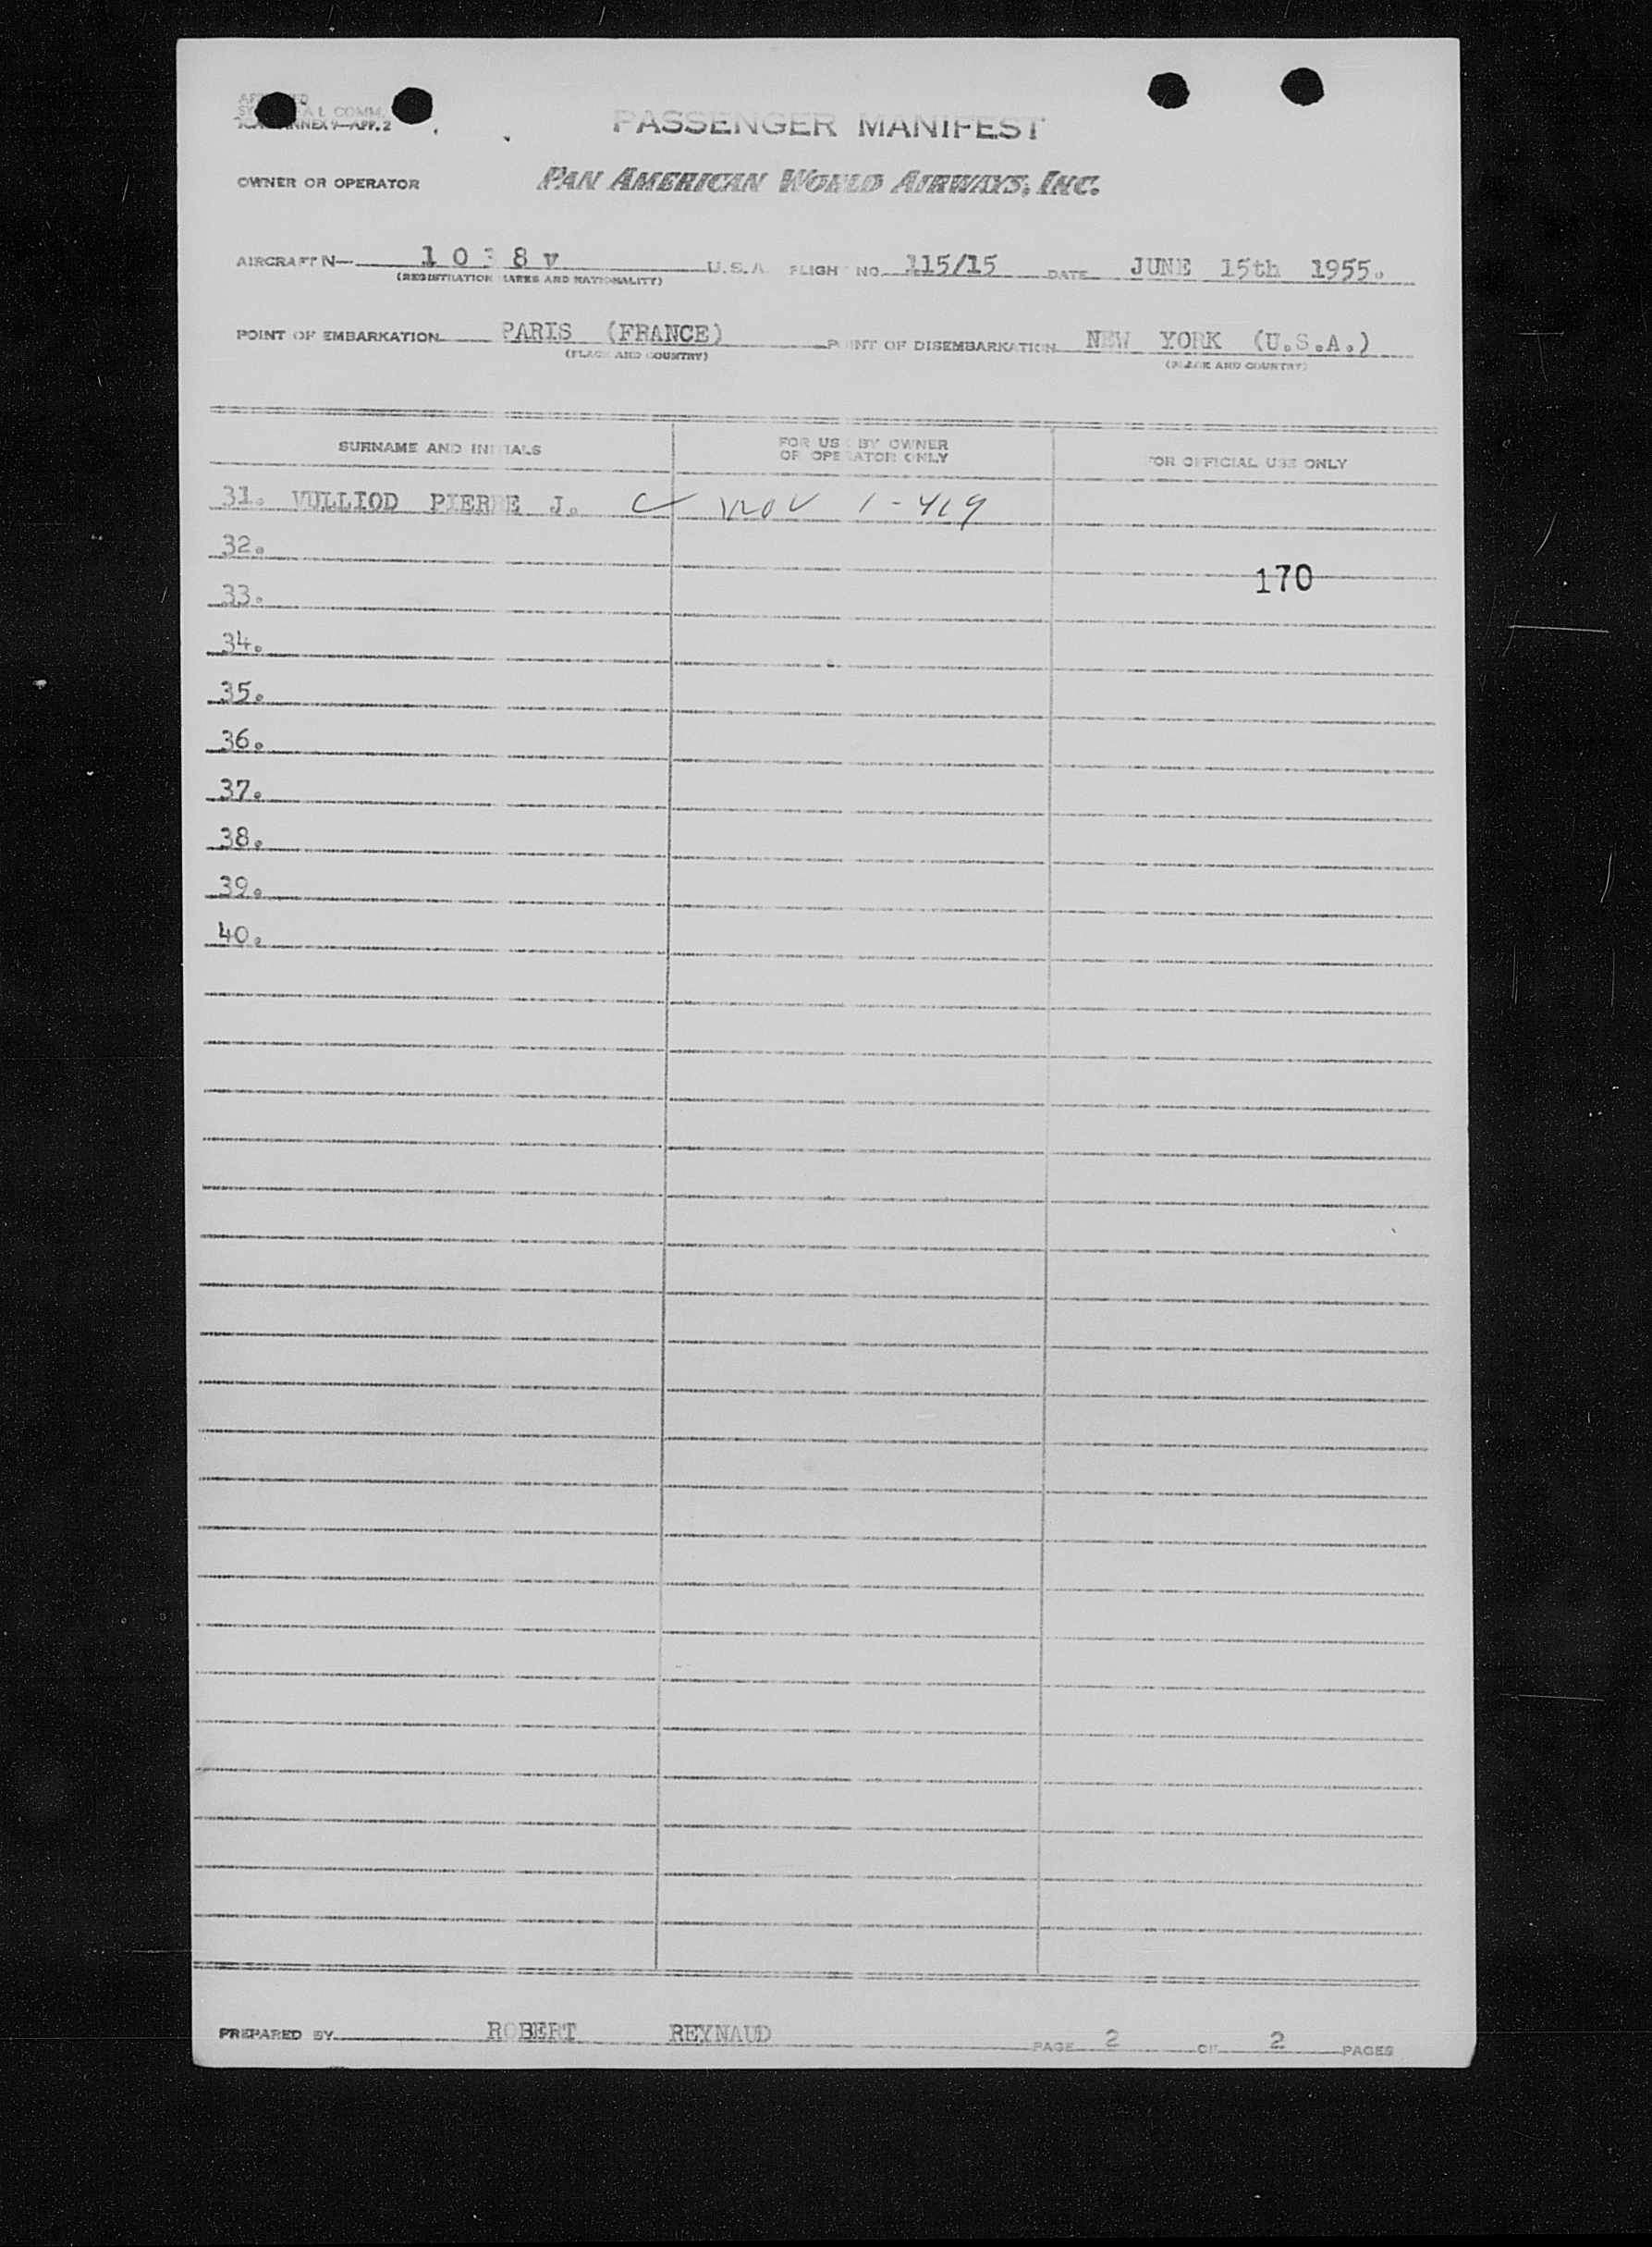 PASSENGER MANIFEST
ANNEX 9—APP. 2
OWNER OR OPERATOR PAN AMERICAN WORLD AIRWAYS, INC.
AIRCRAFT N— 1 0 3 8 V U.S.A. FLIGHT NO. 115/15 DATE JUNE 15th 1955.
(REGISTRATION MARKS AND NATIONALITY)
POINT OF EMBARKATION PARIS (FRANCE) POINT OF DISEMBARKATION NEW YORK (U.S.A.)
(PLACE AND COUNTRY) (PLACE AND COUNTRY)
SURNAME AND INITIALS FOR USE BY OWNER OR OPERATOR ONLY FOR OFFICIAL USE ONLY
31. VULLIOD PIERRE J. 1-419
32.
170
33.
34.
35.
36.
37.
38.
39.
40.
PREPARED BY ROBERT REYNAUD PAGE 2 OF 2 PAGES